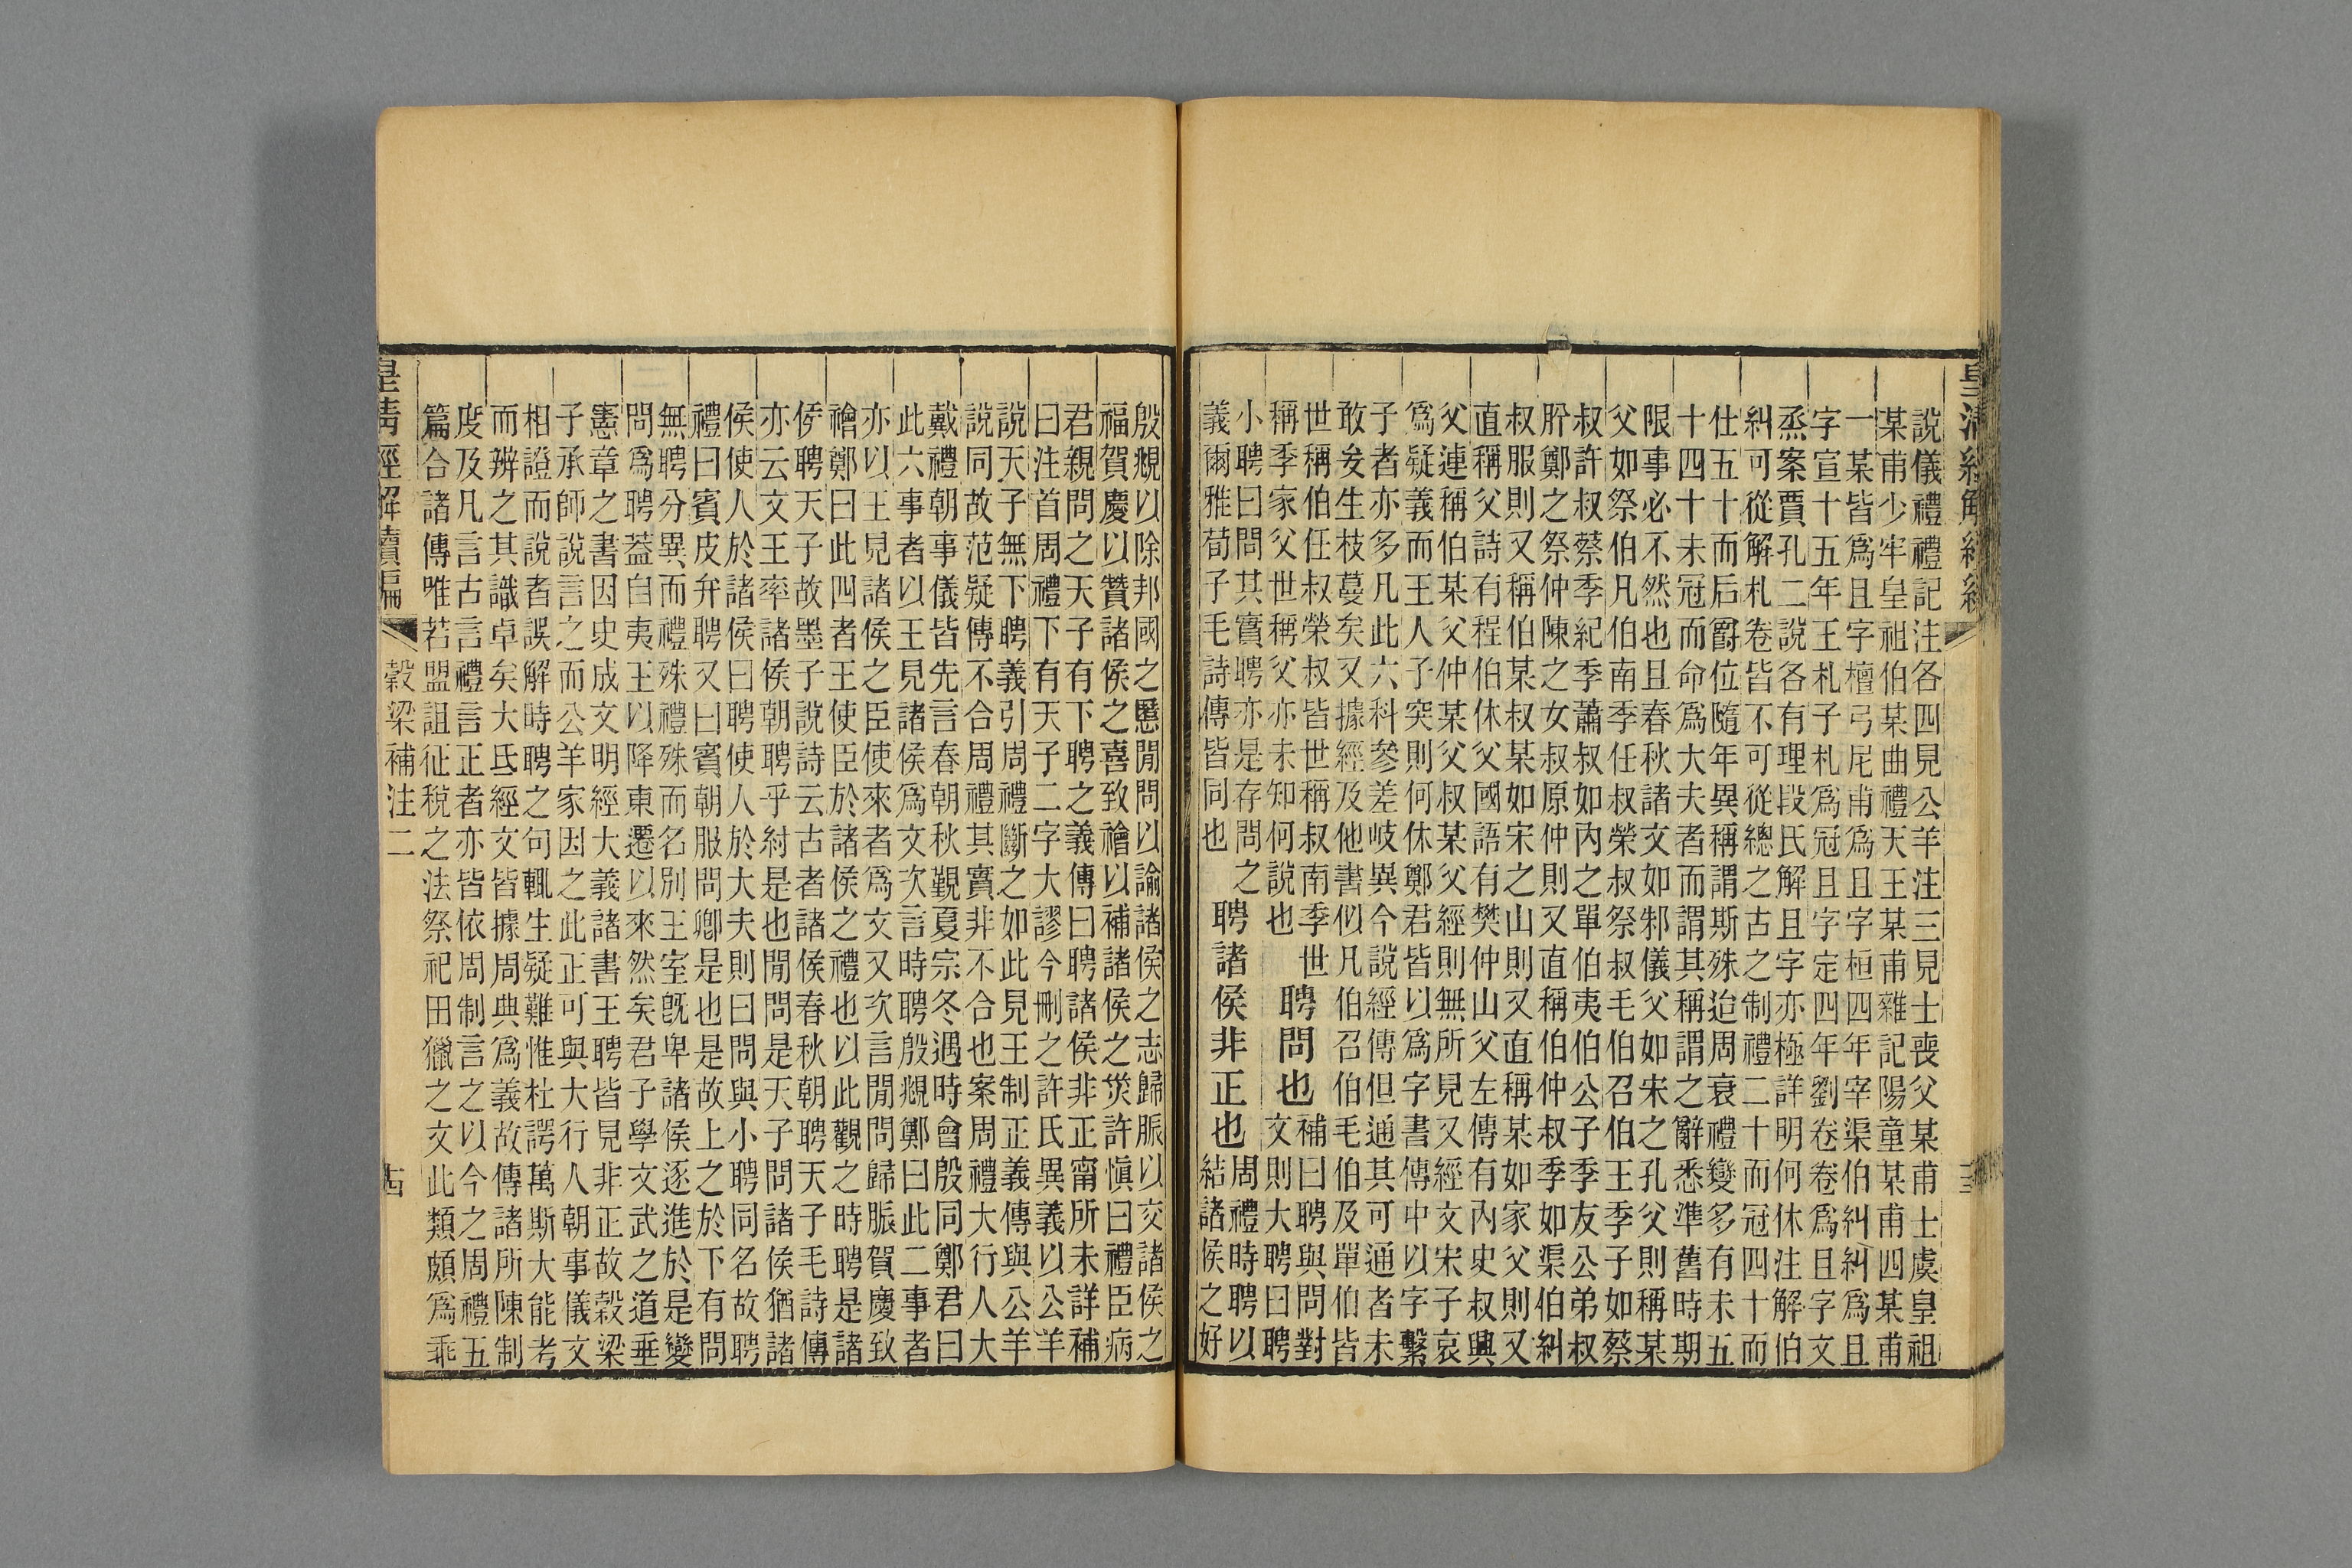 皇清經解續編
說儀禮禮記注各四見公羊注三見士喪父某甫士虞皇祖
某甫少牢皇祖伯某曲禮天王某甫雜記陽童某甫四某甫
一某皆爲且字檀弓尼甫爲且字桓四年宰渠伯糾糾爲且
字宣十五年王札子札爲冠且字定四年劉卷卷爲且字文
烝案賈孔二說各有理段氏解且字亦極詳明何休注解伯
糾可從解札卷皆不可從總之古之制禮二十而冠四十而
仕五十而后爵位隨年異稱謂斯殊迨周衰禮變多有未五
十四十未冠而命爲大夫者而謂其稱謂之辭悉準舊時期
限事必不然也且春秋諸文如邾儀父如宋之孔父則稱某
父如祭伯凡伯南季任叔榮叔祭叔毛伯召伯王季子如蔡
叔許叔蔡季紀季蕭叔叔如內之單伯夷伯公子季友公弟叔
肸鄭之祭仲陳之女叔原仲則又直稱伯仲叔季如渠伯糾
叔服則又稱伯某叔某如宋之山則又直稱某如家父則又
直稱父詩有程伯休父國語有樊仲山父左傳有內史叔興
父連稱伯某父仲某父叔某父經則無所見又經文宋子哀
爲疑義而王人子突則何休鄭君皆以爲字書傳中以字繫
子者亦多凡此六科參差岐異今說經傳但通其可通者未
敢妄生枝蔓矣又據經及他書似凡伯召伯毛伯及單伯皆
世稱伯任叔榮叔皆世稱叔南季世
稱季家父世稱父亦未知何說也
聘問也
補曰聘與問對
文則大聘曰聘
小聘曰問其實聘亦是存問之
義爾雅荀子毛詩傳皆同也
聘諸侯非正也
周禮時聘以
結諸侯之好
殷覜以除邦國之慝閒問以諭諸侯之志歸脤以交諸侯之
福賀慶以贊諸侯之喜致禬以補諸侯之烖許愼曰禮臣病
君親問之天子有下聘之義傳曰聘諸侯非正甯所未詳補
曰注首周禮下有天子二字大謬今刪之許氏異義以公羊
說天子無下聘義引周禮斷之如此見王制正義傳與公羊
說同故范疑傳不合周禮其實非不合也案周禮大行人大
戴禮朝事儀皆先言春朝秋覲夏宗冬遇時會殷同鄭君曰
此六事者以王見諸侯爲文次言時聘殷覜鄭曰此二事者
亦以王見諸侯之臣使來者爲文又次言閒問歸脤賀慶致
禬鄭曰此四者王使臣於諸侯之禮也以此觀之時聘是諸
侯聘天子故墨子說詩云古者諸侯春秋朝聘天子毛詩傳
亦云文王率諸侯朝聘乎紂是也閒問是天子問諸侯猶諸
侯使人於諸侯曰聘使人於大夫則曰問與小聘同名故聘
禮曰賓皮弁聘又曰賓朝服問卿是也是故上之於下有問
無聘分異而禮殊禮殊而名別王室旣卑諸侯逐進於是變
問爲聘葢自夷王以降東遷以來然矣君子學文武之道垂
憲章之書因史成文明經大義諸書王聘皆見非正故穀梁
子承師說言之而公羊家因之此正可與大行人朝事儀文
相證而說者誤解時聘之句輒生疑難惟杜諤萬斯大能考
而辨之其識卓矣大氐經文皆據周典爲義故傳諸所陳制
度及凡言古言禮言正者亦皆依周制言之以今之周禮五
篇合諸傳唯若盟詛征稅之法祭祀田獵之文此類頗爲乖
皇清經解續編 穀梁補注二 十四